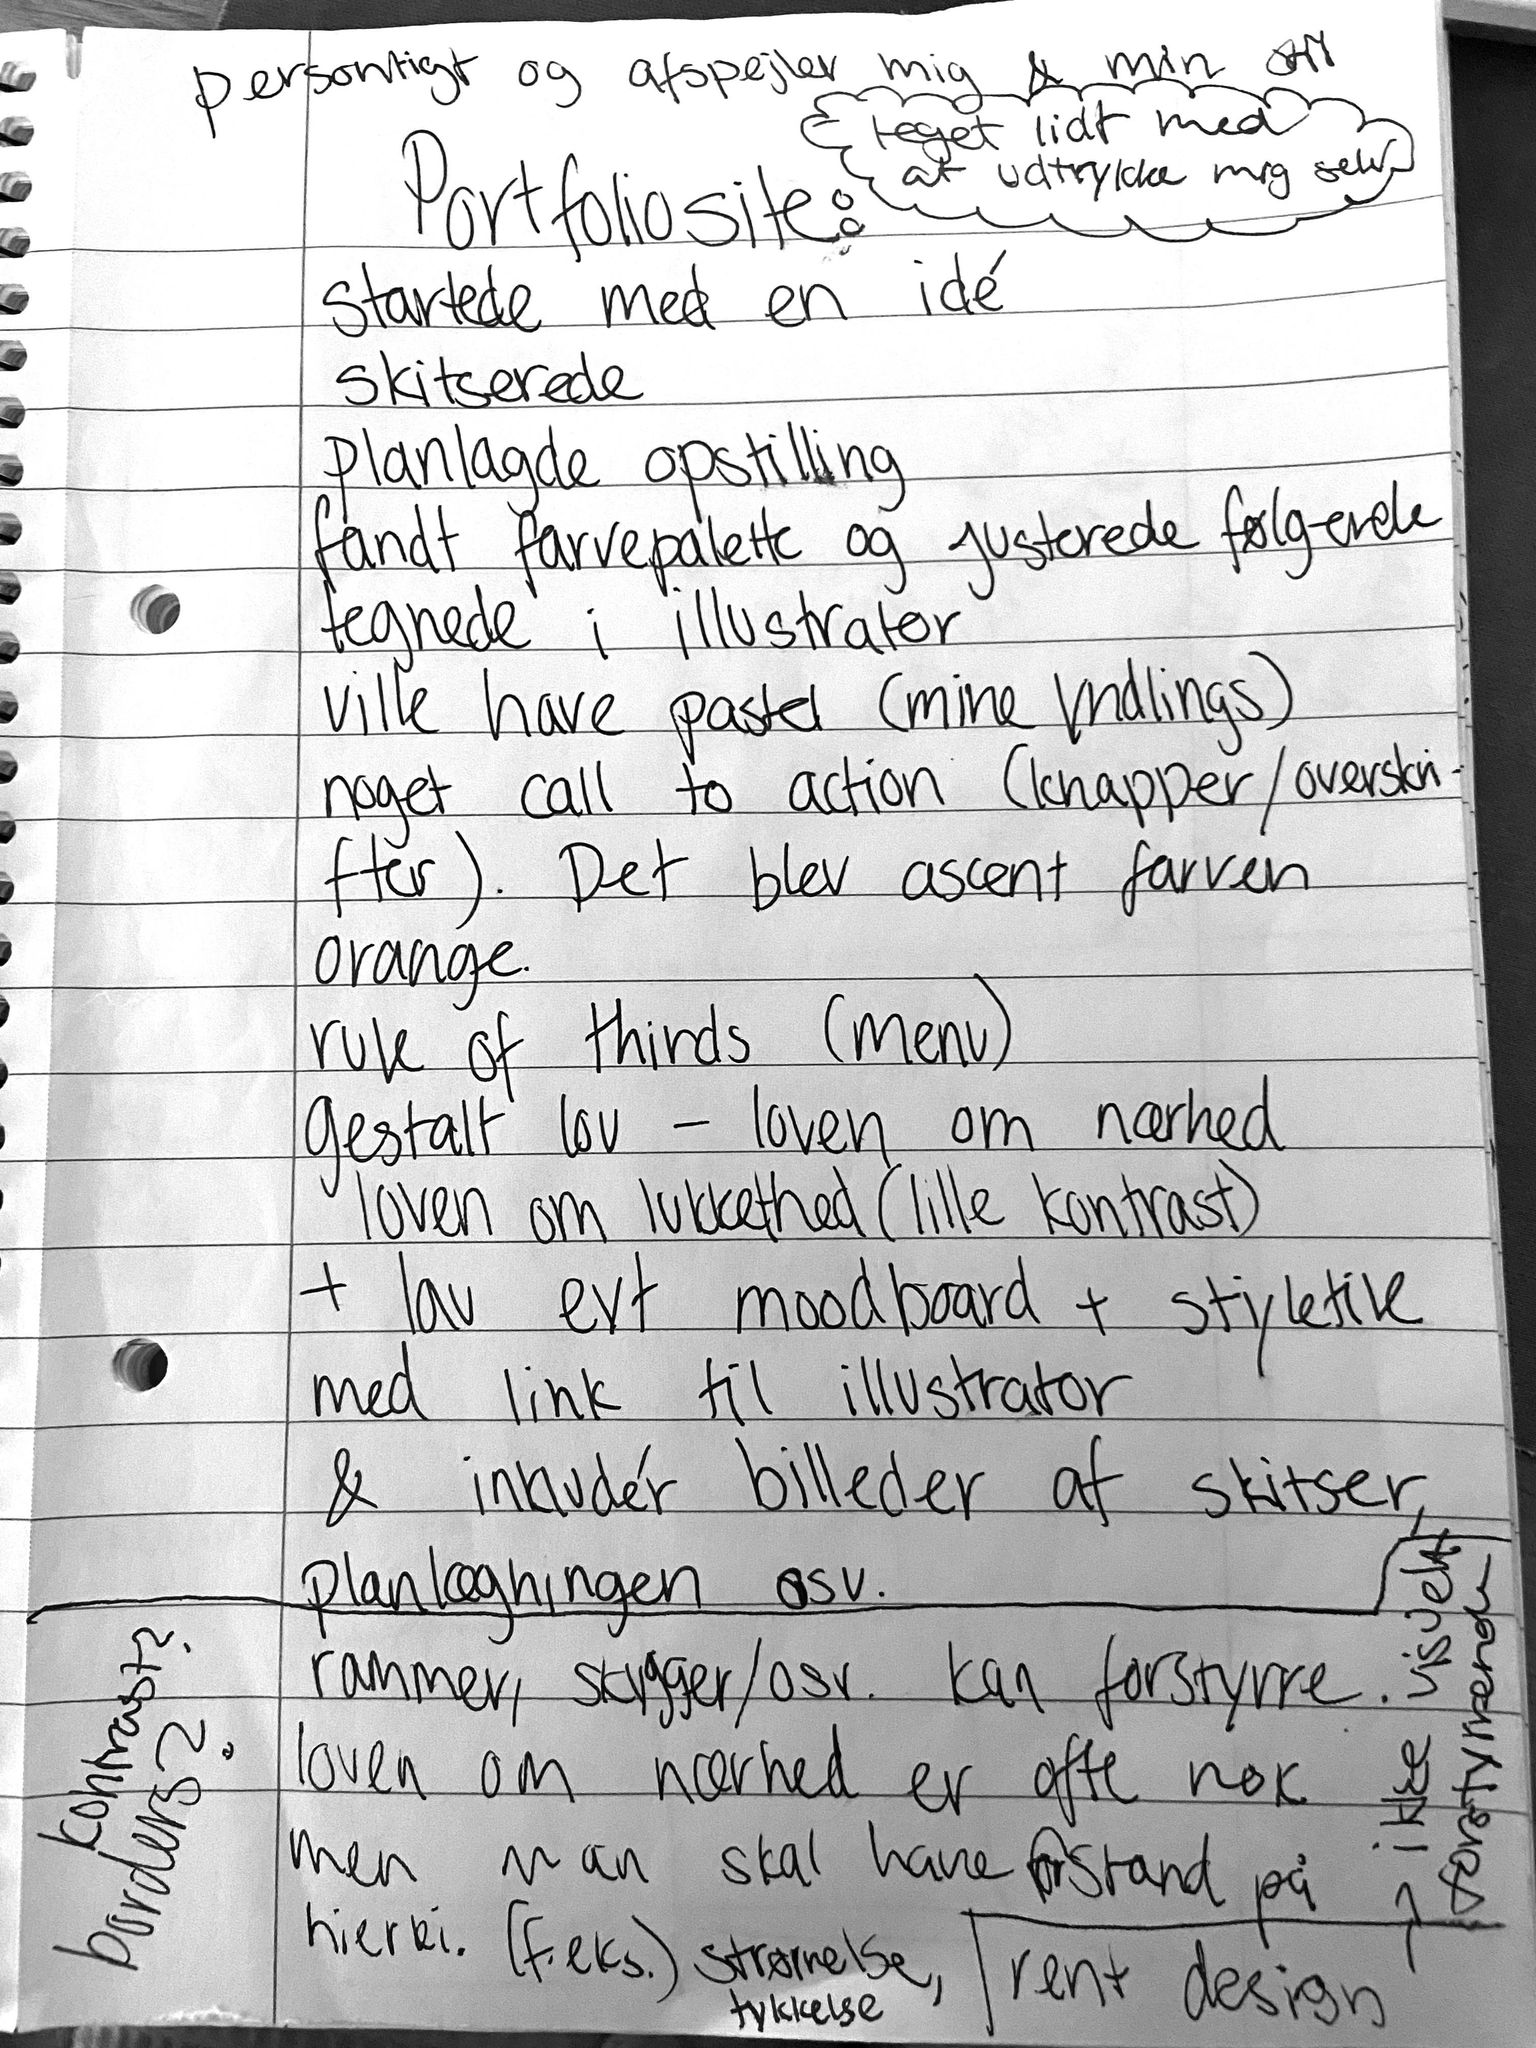 personligt og afspejler mig & min stil
teget lidt med
at udtrykke mig selv
Portfoliosite:
startede med en idé
skitserede
planlagde opstilling
fandt farvepalette og justerede følgende
tegnede i illustrator
ville have pastel (mine yndlings)
noget call to action (knapper/overskri-
fter). Det blev ascent farven
orange.
rule of thirds (menu)
gestalt lov - loven om nærhed
loven om lukkethed (lille kontrast)
+ lav evt moodboard + styletile
med link til illustrator
& inkludér billeder af skitser,
planlægningen osv.
kontrast?
borders?
rammer, skygger/osv. kan forstyrre.
loven om nærhed er ofte nok
men man skal have forstand på
hierki. (f.eks.) størrelse,
tykkelse
rent design
→ ikke visuelt
forstyrrende